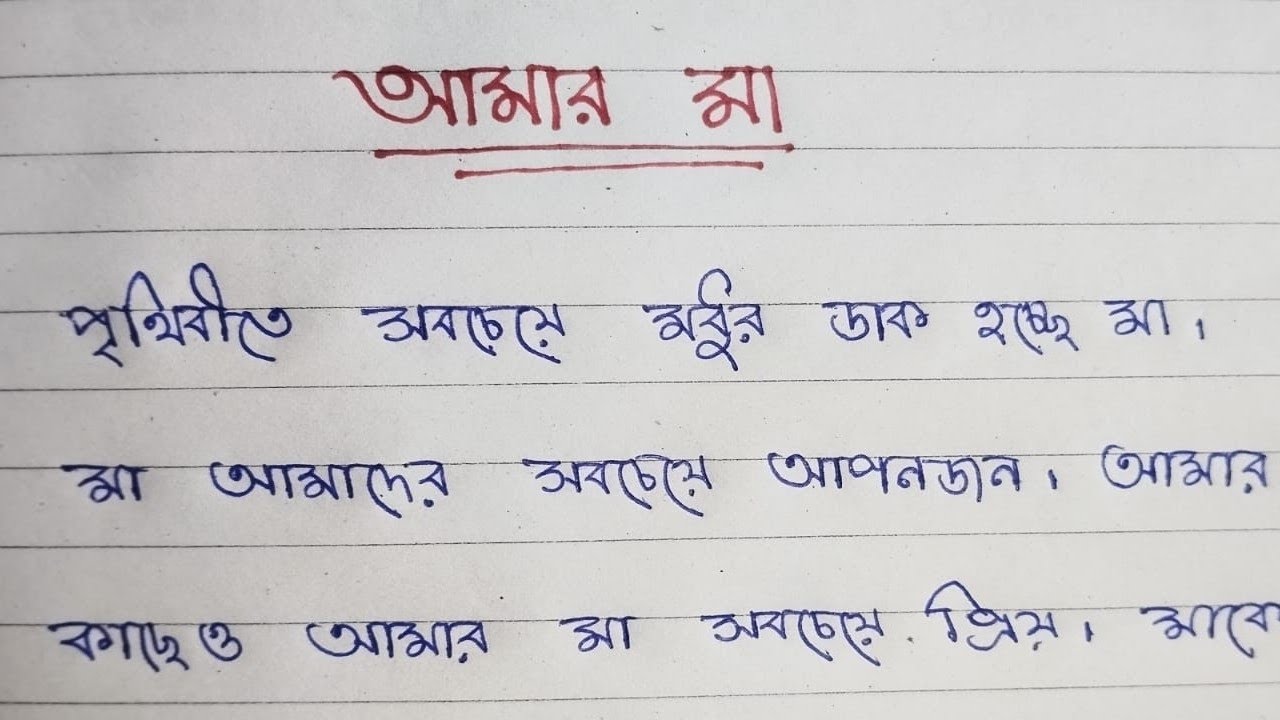 আমার মা
পৃথিবীতে সবচেয়ে মধুর ডাক হচ্ছে মা।
মা আমাদের সবচেয়ে আপনজন। আমার
কাছেও আমার মা সবচেয়ে প্রিয়। মাকে